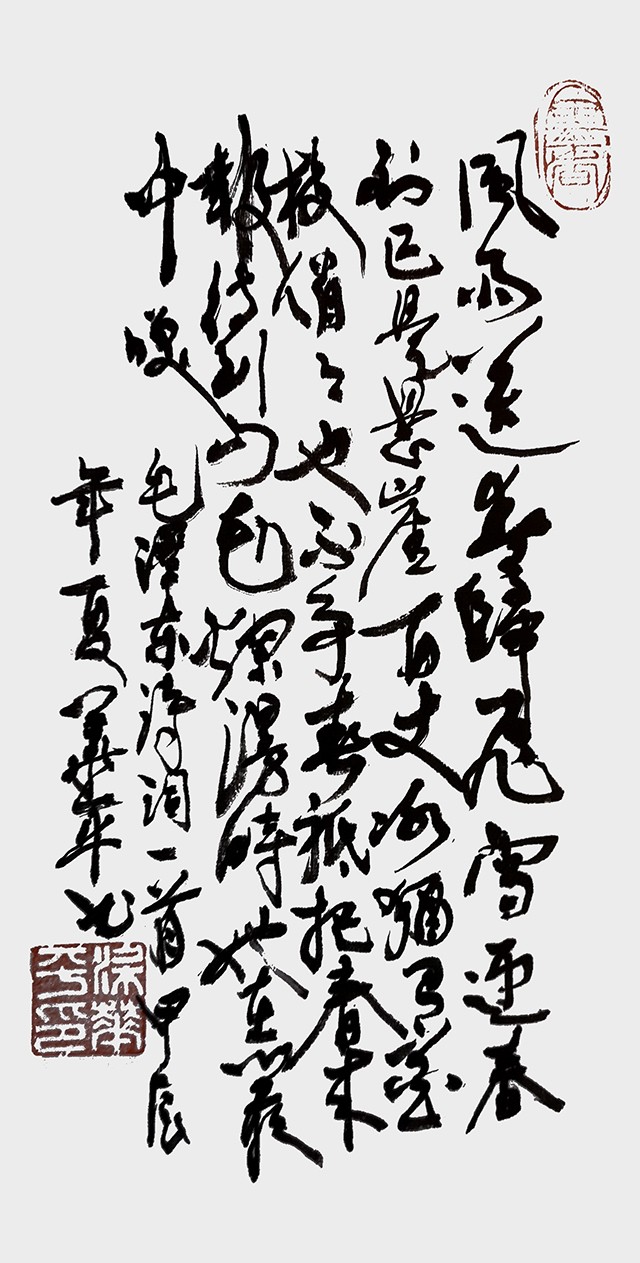 風雨送春歸飛雪迎春
到已是懸崖百丈冰猶有花
枝俏々也不爭春祇把春来
報待到山花爛漫時她在叢
中咲
毛澤東詩詞一首甲辰
年夏華平书